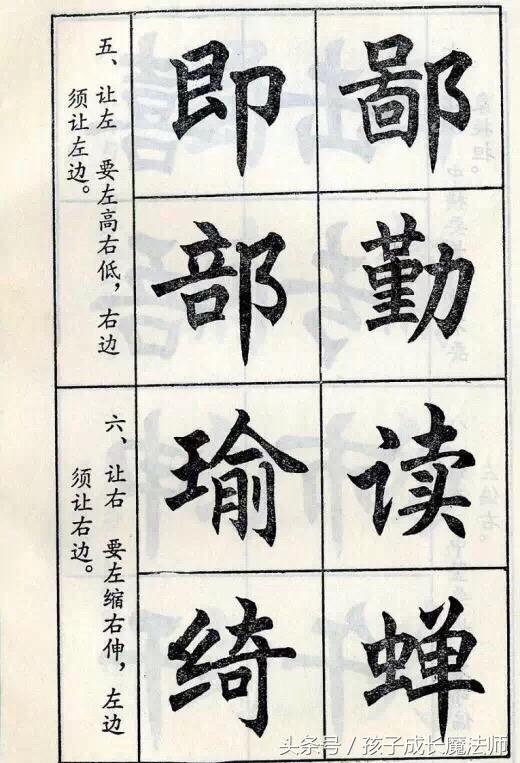 五、让左 要左高右低，右边
须让左边。
即 鄙
部 勤
六、让右 要左缩右伸，左边
须让右边。
瑜 读
绮 蝉
头条号／孩子成长魔法师